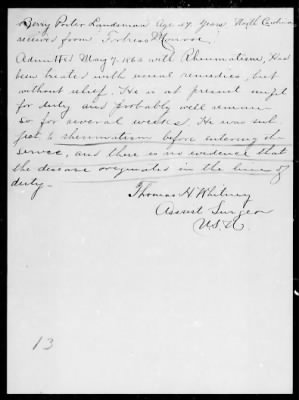 Berry Porter Landsman Age 57 Years North Carolina
received from Fortress Monroe
Admitted May 7. 1863 with Rheumatism, Has
been treated with usual remedies, but
without relief. He is at present unfit
for duty and probably will remain
so for several weeks. He was sub-
ject to rheumatism before entering the
service, and there is no evidence that
the disease originated in the line of
duty-
Thomas H Whitney
Assist Surgeon
U.S.A
13